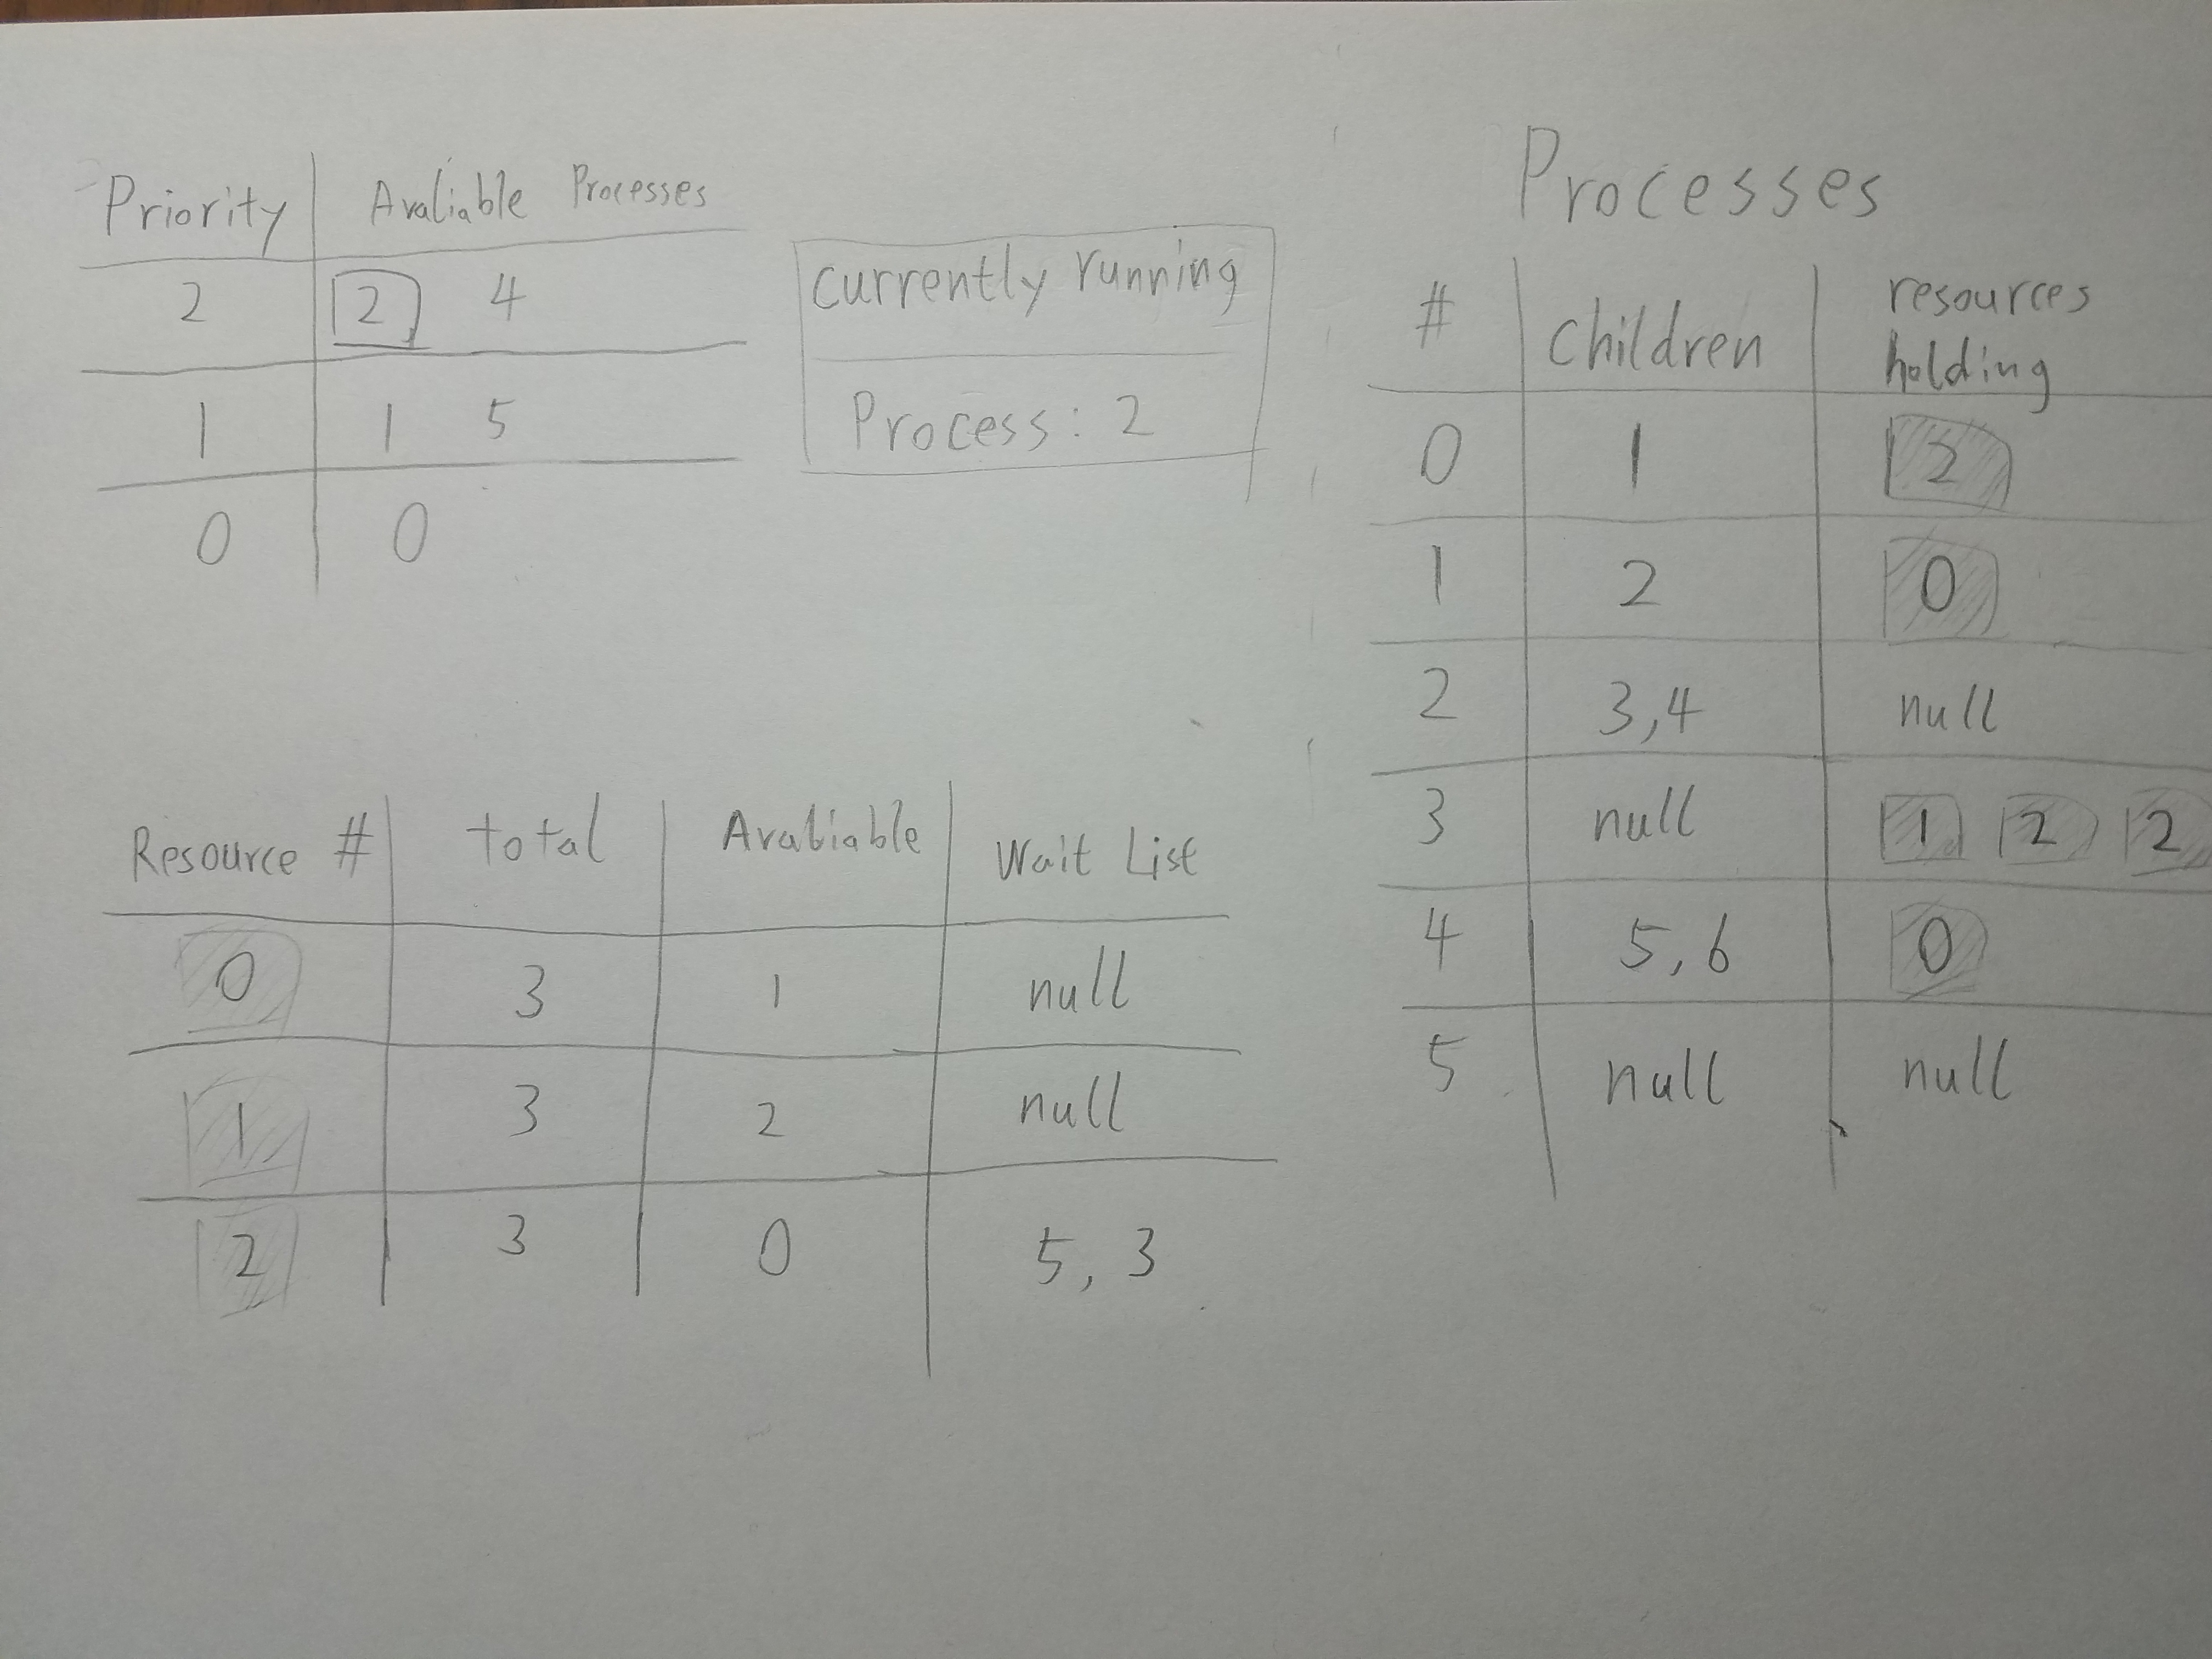 Priority Avaliable Processes
2 2 4
1 1 5
0 0
Currently running
Process: 2
Resource # total Avaliable Wait List
0 3 1 null
1 3 2 null
2 3 0 5, 3
Processes
# Children resources holding
0 1 2
1 2 0
2 3,4 null
3 null 1 2 2
4 5,6 0
5 null null